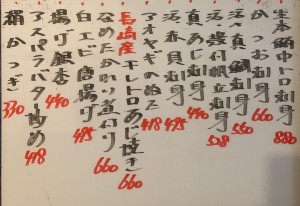 生本鮪中トロ刺身 880
かつお刺身 660
活〆真鯛刺身 550
活〆殻付帆立刺身 528
真あじ刺身 440
活赤貝刺身 495
アオヤギのぬた 418
長崎産 干しトロあじ焼き 660
なめたかれい煮付け 660
白エビ唐揚げ 495
揚げ銀杏 440
アスパラバター炒め 418
330